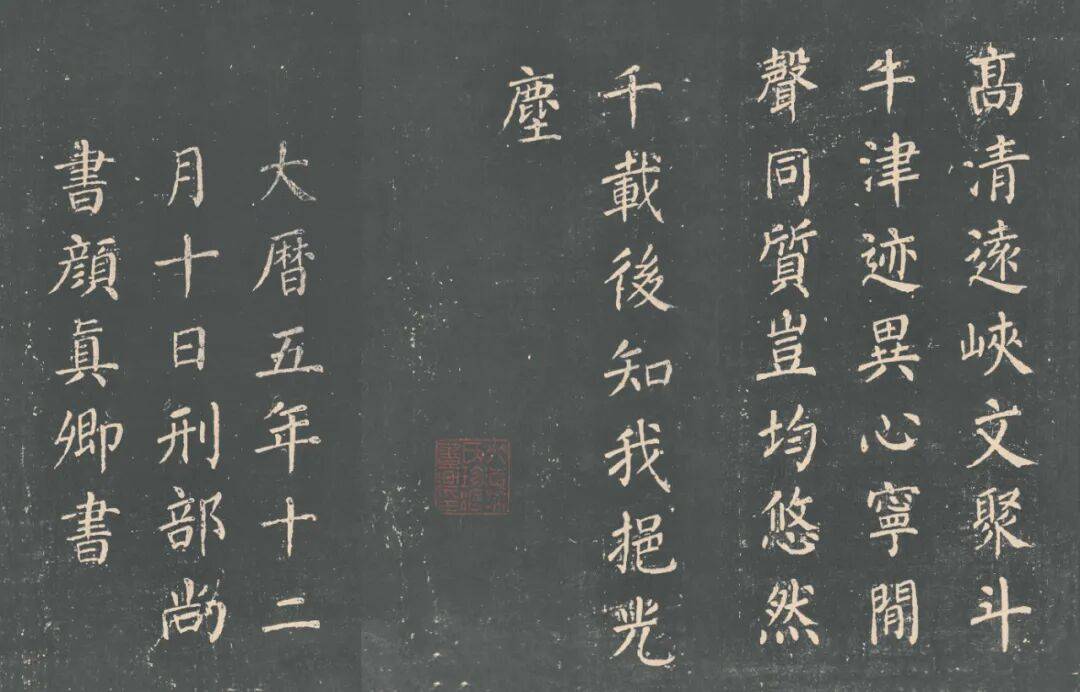 髙清遠峽文聚斗
牛津迹異心寧閒
聲同質豈均悠然
千載後知我挹光
塵
大暦五年十二
月十日刑部尚
書顔真卿書